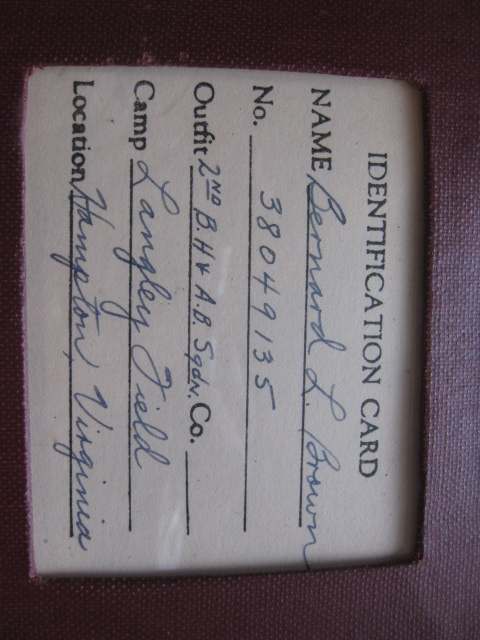 IDENTIFICATION CARD
NAME Bernard L. Brown
No. 38049135
Outfit 2ND B.H & A.B. Sqdn. Co.
Camp Langley Field
Location Hampton, Virginia